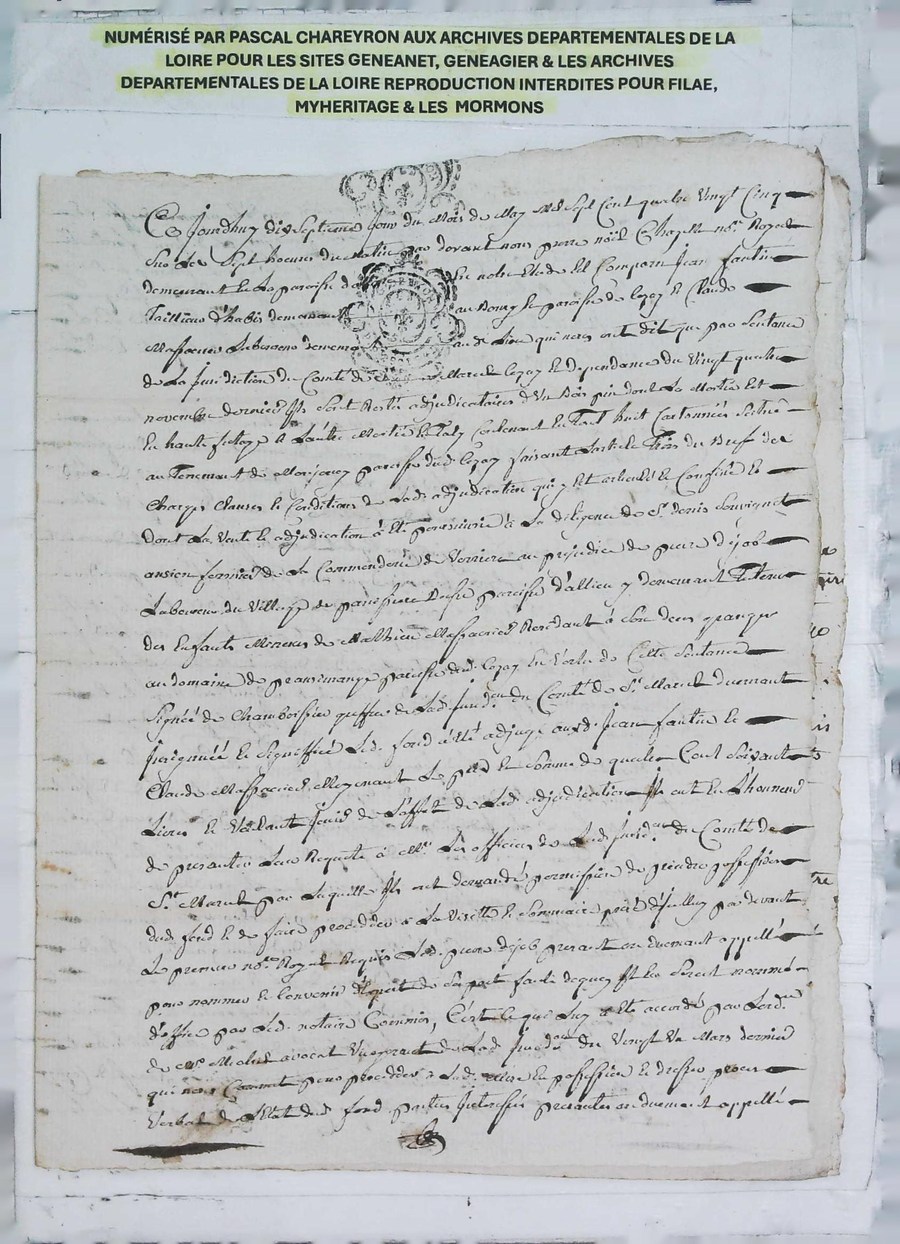 NUMÉRISÉ PAR PASCAL CHAREYRON AUX ARCHIVES DEPARTEMENTALES DE LA
LOIRE POUR LES SITES GENEANET, GENEAGIER & LES ARCHIVES
DEPARTEMENTALES DE LA LOIRE REPRODUCTION INTERDITES POUR FILAE,
MYHERITAGE & LES MORMONS
Ce Jourdhuy dix Septieme Jour du Mois de May Mil Sept Cent quatre Vingt Cinq
Sur Les Sept heures du matin par devant nous pierre noël Chapelle nore Royal
demeurant En La paroisse de En notre Etude Est Comparu Jean fautrie
Tailleur d'habis demeurant au Bourg et paroisse de Cezay et Claude
Laboureur demeurant aud Lieu qui nous ont dit que par Sentence
de La Jurisdiction du Comté de St Marcel Cezay et dependance du Vingt quatre
novembre dernier Ils Sont Restés adjudicataires d'Un Bois pin dont La Moitié Est
En haute futaye & L'autre Moitié En Contenant En Tout huit Cartonnées Scitué
au Tenement de paroisse dud Cezay faisant L'article Trois du Bref des
Charges Clauses et Conditions de Lad. adjudication qui y Est articulé et Confiné et
dont La Vente et adjudication a été poursuivie à La diligence de Sr denis Souvignet
ancien fermier de La Commenderie de Verrieres au prejudice de pierre d'job
Laboureur du Village de paroisse d'allieu y demeurant
des Enfants Mineurs de Mathieu Residant à Son
au domaine de paroisse dud. Cezay En Vertu de Cette Sentence
Signée de Chamboissier greffier de Lad. Jurisdon du Comté de St Marcel duement
et Signiffiée Led. fond a été adjugé auxd. Jean fautrie et
Claude Moyenant Le prix et Somme de quatre Cent Soixante
Livres et Voulant Jouir de L'effet de Lad. adjudication Ils ont Eu L'honneur
de presenter Leur Requete à Mrs Les officiers de Lad. Jurisdon du Comté de
St Marcel par Laquelle Ils ont demandé permission de prendre possession
dud. fond et de faire proceder à La Visitte et Sommaire prisée d'Icelluy par devant
Le premier nore Royal Requis Led. pierre d'job present ou duement appellé
pour nommer et Convenir d'Expert de Sa part faute dequoy Il En Seroit nommé
d'office par Led. notaire Commis, C'est Ce qui Luy a été accordé par
de avocat de Lad. Jurisdon du Vingt Un Mars dernier
qui nous Commet pour proceder à Lad. mise En possession et dresser procès
Verbal de L'Etat dud fond parties Interessées presentes ou duement appellé